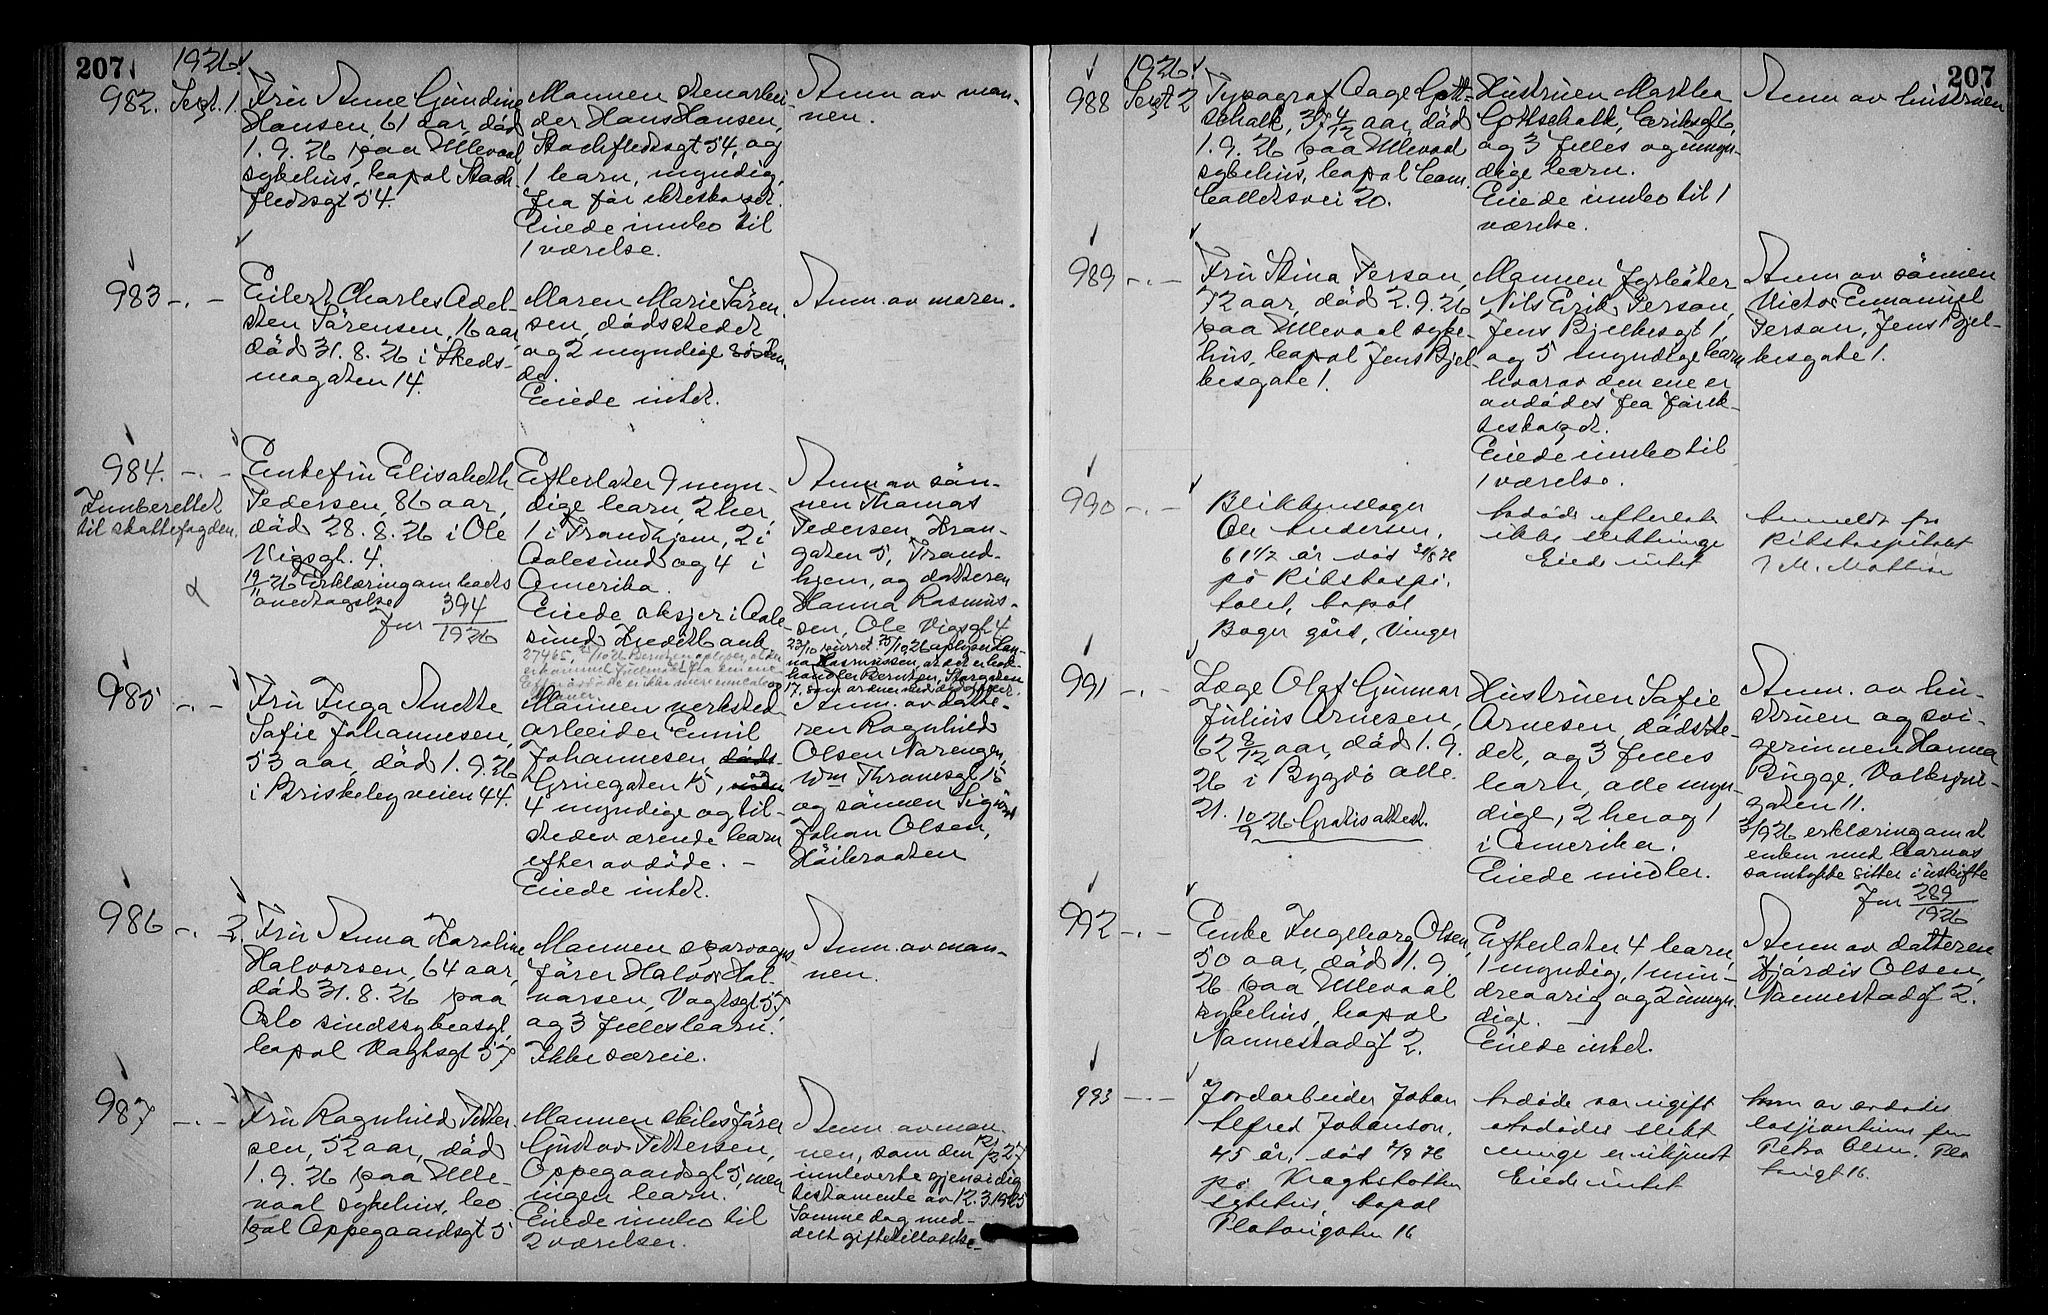 207
1926.
982. Sept. 1.
Fru Anne Gundine
Hansen, 61 aar, död
1. 9. 26 paa Ullevaal
sykehus, bopæl Stock-
fledsgt 54.
Mannen stenarbei-
der Hans Hansen,
Stockfledsgt 54, og
1 barn, myndig,
fra før ekteskapet.
Eiede innbo til
1 værelse.
Anm. av man-
nen.
983 -.-
Eilert Charles Adel-
sten Sörensen, 16 aar,
död 31. 8. 26 i Skeds-
mogaten 14.
Moren Marie Sören-
sen, dödsstedet
og 2 myndige sösken-
de.
Eiede intet.
Anm. av moren.
984. -.-
Innberettet
til skattefogden.
Enkefru Elisabeth
Pedersen, 86 aar,
död 28. 8. 26 i Ole
Vigsgt. 4.
19/11 26 Erklæring om boets
overtagelse
Jnr 394/1926
Efterlater 9 myn-
dige barn, 2 her,
1 i Trondhjem, 2 i
Aalesund og 4 i
Amerika.
Eiede aksjer i Aale-
sund Kreditbank
27465,
Anm. av sön-
nen Thomas
Pedersen, Kran-
gaten 5, Trond-
hjem, og datteren
Hanna Rasmus-
sen, Ole Vigsgt. 4
23/10 purret. 25/10 26 oplyser Han-
na Rasmussen, at det er bok-
handler Berntzen, Storgaten
17, som ordner med dødsboet.
985 -.-
Fru Inga Anette
Sofie Johannesen,
53 aar, död 1. 9. 26
i Briskebyveien 44.
Mannen verksted-
arbeider Emil
Johannesen döds-
Griegaten 15,
4 myndige og til-
stedeværende barn
efter avdøde. -
Eiede intet.
Anm. av datte-
ren Ragnhild
Olsen Narengen,
Wm Thranesgt 15
og sönnen Sigurd
Johan Olsen,
Höibraaten
986 -.- 2.
Fru Anna Karoline
Halvorsen, 64 aar,
död 31. 8. 26 paa
Oslo sindssykeasyl,
bopæl Vogtsgt 57
Mannen sporvogns-
fører Halvor Hal-
vorsen, Vogtsgt 57,
og 3 felles barn.
Ikke særeie.
Anm. av man-
nen.
987 -.-
Fru Ragnhild Petter-
sen, 52 aar, död
1. 9. 26 paa Ulle-
vaal sykehus, bo-
pæl Oppegaardsgt 5
Mannen skibsfører
Gustav Pettersen,
Oppegaardsgt 5, men
ingen barn.
Eiede innbo til
2 værelser.
Anm. av man-
nen, som den 12/2 27
innleverte gjensidig
testamente av 12. 3. 1925
Samme dag med-
delt giftetillatelse.
207
1926.
988 Sept 2
Typograf Aage Gott-
schalk, 37 4/12 aar, död
1. 9. 26 paa Ullevaal
sykehus, bopæl Cam.
Collettsvei 20.
Hustruen Martha
Gottschalk, Eriksgt 6,
og 3 felles og umyn-
dige barn.
Eiede innbo til 1
værelse.
Anm. av hustruen
989 -.-
Fru Stina Person,
72 aar, död 2. 9. 26
paa Ullevaal syke-
hus, bopæl Jens Bjel-
kesgate 1.
Mannen fyrböter
Nils Erik Person,
Jens Bjelkesgt 1,
og 5 myndige barn
hvorav den ene er
avdödes fra før ek-
teskapet.
Eiede innbo til
1 værelse.
Anm. av sönnen
Victor Emanuel
Person, Jens Bjel-
kesgate 1.
990 -.-
Blikkenslager
Ole Andersen,
61 1/2 år död 31/8 26
på Rikshospi-
talet, bopæl
Boger gård, Vinger
Avdøde efterlot
ikke slektninge
Eiede intet
Anmeldt fra
Rikshospitalet
991 -.-
Læge Olaf Gunnar
Julius Arnesen,
62 8/12 aar, död 1. 9.
26 i Bygdö alle
21. 10/9 26 Gratis attest.
Hustruen Sofie
Arnesen dödsste-
det, og 3 felles
barn, alle myn-
dige, 2 her og 1
i Amerika.
Eiede midler.
Anm. av hu-
struen og svi-
gerinnen Hanna
Bugge, Valkyrie-
gaten 11.
3/9 26 erklæring om at
enken med barnas
samtykke sitter i uskifte
Jnr 289/1926
992 -.-
Enke Ingeborg Olsen,
50 aar, död 1. 9.
26 paa Ullevaal
sykehus, bopæl
Nannestadgt 2.
Efterlater 4 barn,
1 myndig, 1 min-
dreaarig og 2 umyn-
dige. -
Eiede intet.
Anm av datteren
Hjördis Olsen,
Nannestadgt 2.
993 -.-
Jordarbeider Johan
Alfred Johanson,
45 år, død 1/9 26
på Krohgstötten
sykehus, bopæl
Platougaten 16
Avdøde var ugift
Avdødes slekt-
ninge er ukjendt
Eiede intet
Anm av avdødes
losjivertinne fru
Petra Olsen, Pla-
tougt 16.